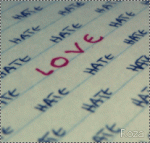 HATE HATE
HATE HATE HATE
LOVE HATE
HATE HATE HATE HATE
HATE HATE HATE
HATE HATE HATE